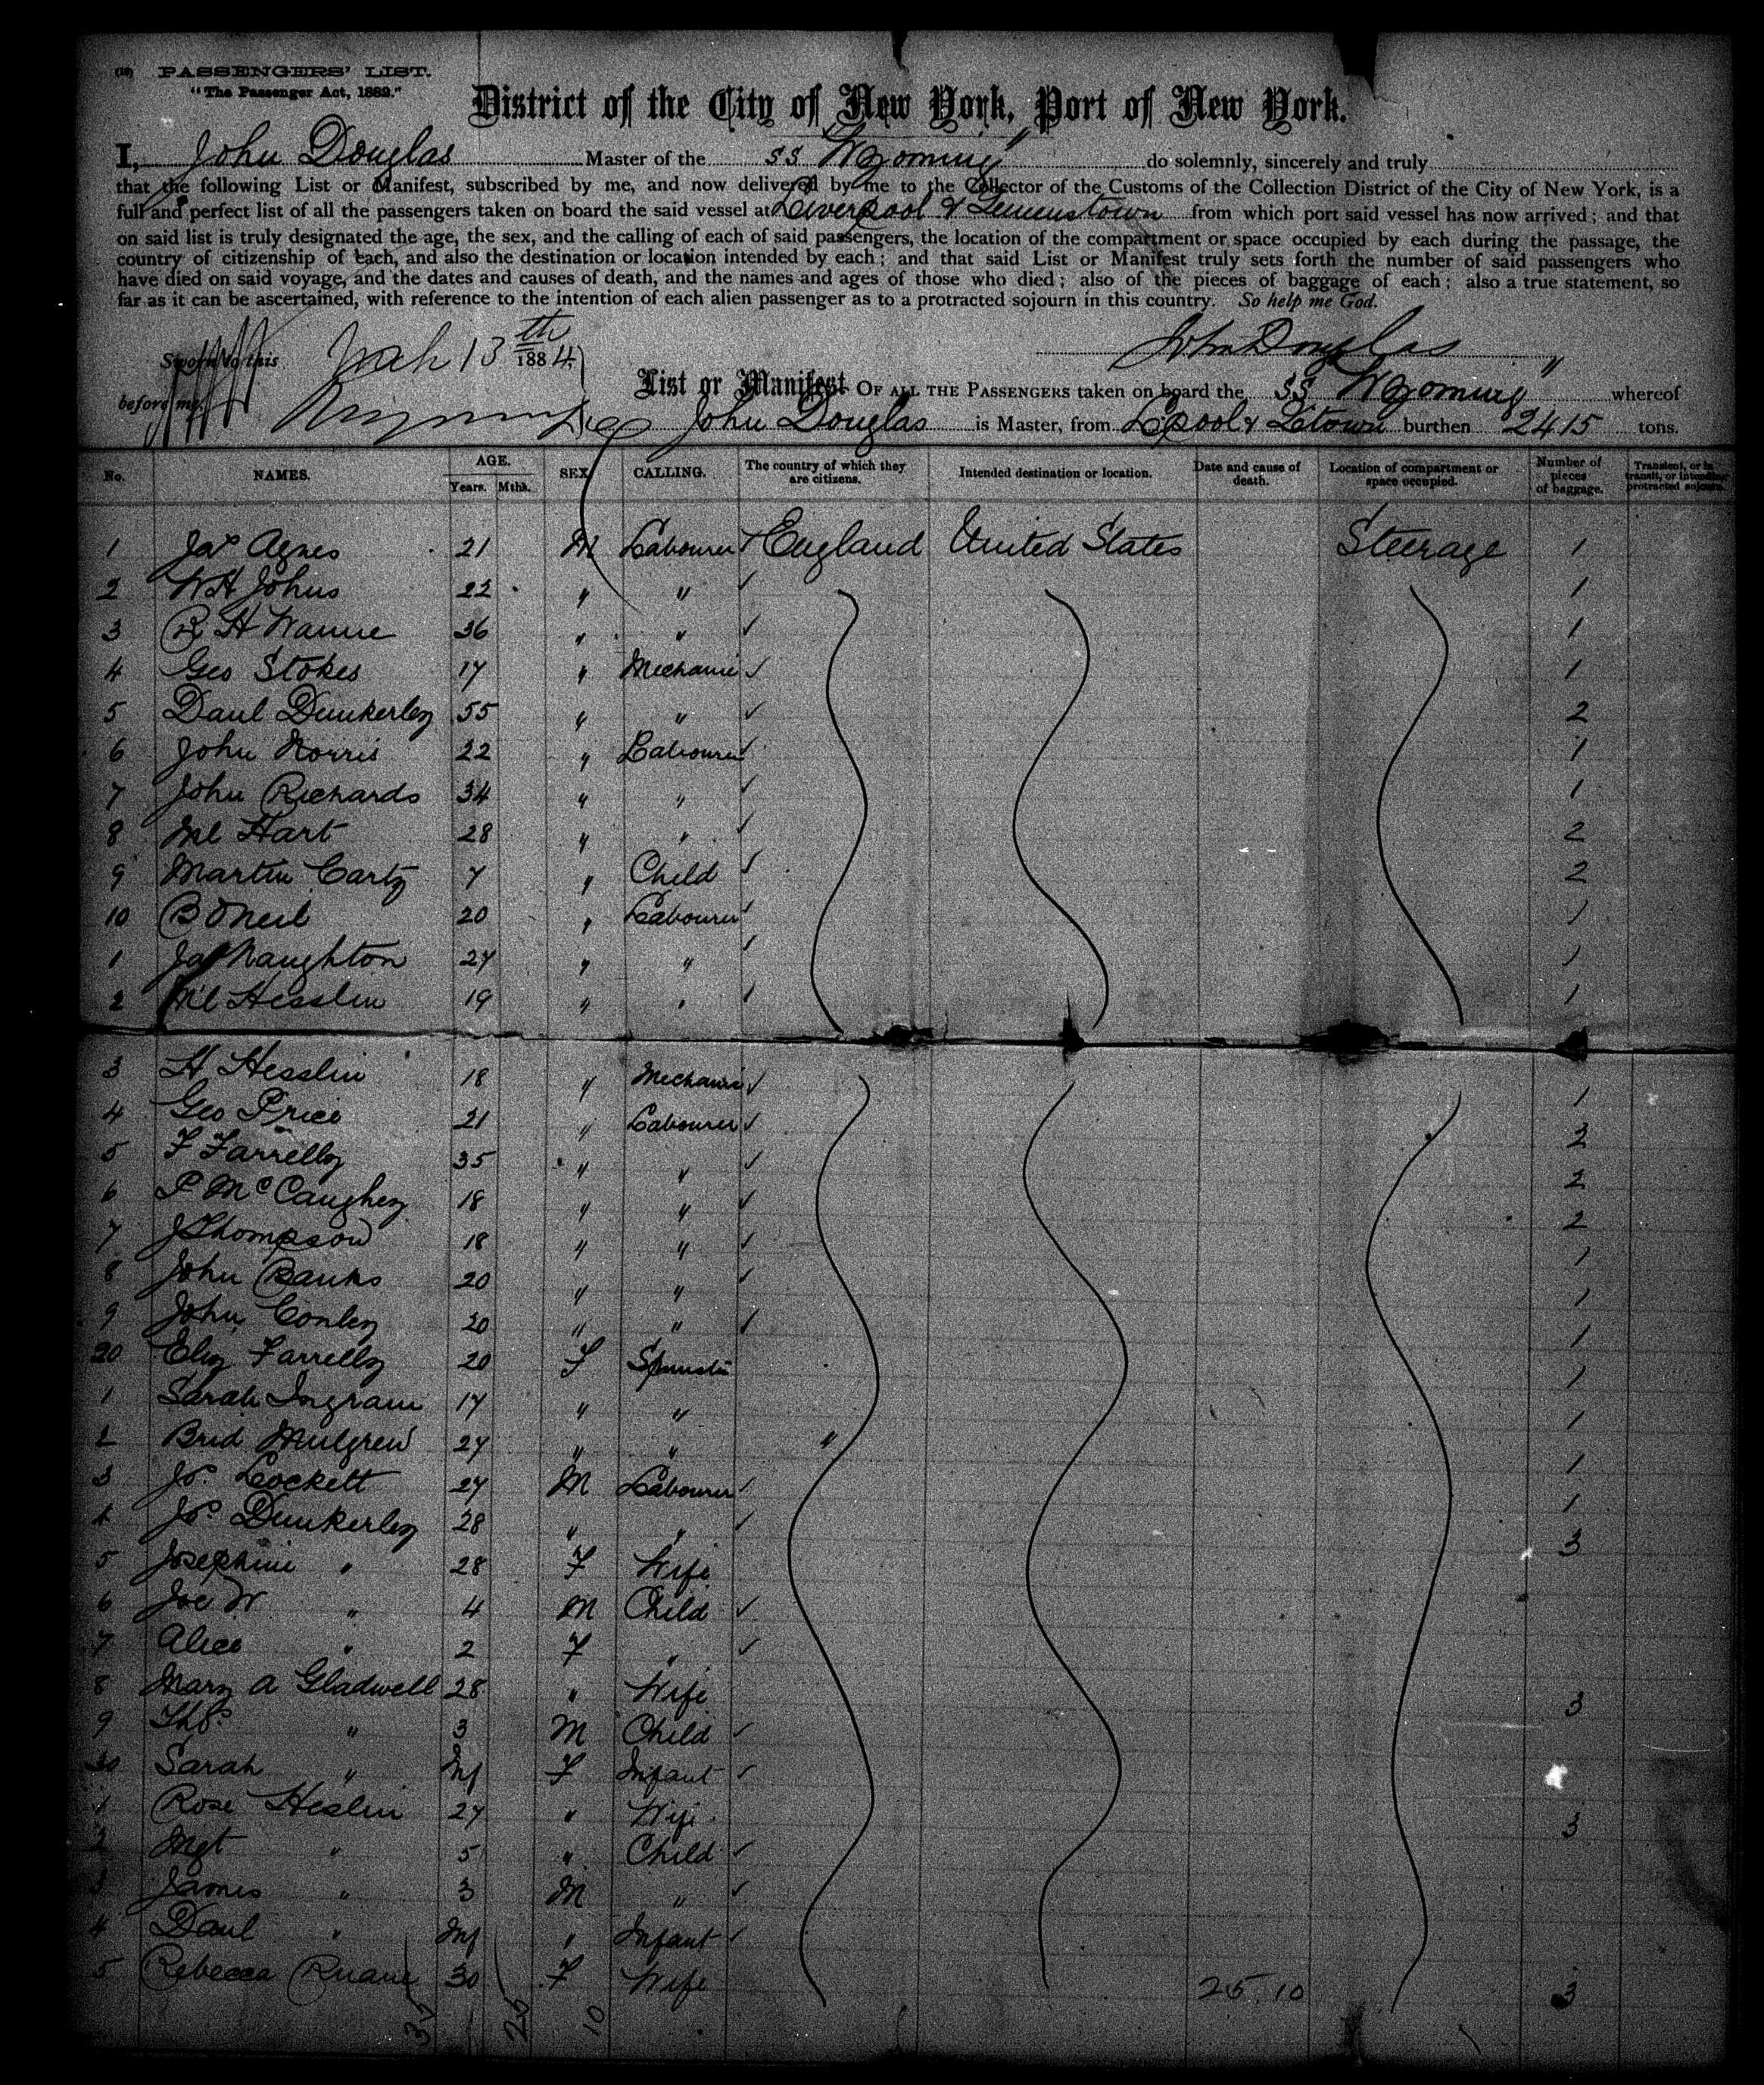 (10) PASSENGERS' LIST.
"The Passenger Act, 1882."
District of the City of New York, Port of New York.
I, John Douglas Master of the SS "Wyoming" do solemnly, sincerely and truly
that the following List or Manifest, subscribed by me, and now delivered by me to the Collector of the Customs of the Collection District of the City of New York, is a
full and perfect list of all the passengers taken on board the said vessel at Liverpool & Queenstown from which port said vessel has now arrived; and that
on said list is truly designated the age, the sex, and the calling of each of said passengers, the location of the compartment or space occupied by each during the passage, the
country of citizenship of each, and also the destination or location intended by each; and that said List or Manifest truly sets forth the number of said passengers who
have died on said voyage, and the dates and causes of death, and the names and ages of those who died; also of the pieces of baggage of each; also a true statement, so
far as it can be ascertained, with reference to the intention of each alien passenger as to a protracted sojourn in this country. So help me God.
Sworn to this Mch 13th 1884 John Douglas
before me
List or Manifest OF ALL THE PASSENGERS taken on board the SS Wyoming" whereof
John Douglas is Master, from L'pool & Q'town burthen 2415 tons.
No. NAMES. AGE. Years. Mths. SEX. CALLING. The country of which they are citizens. Intended destination or location. Date and cause of death. Location of compartment or space occupied. Number of pieces of baggage. Transient, or in transit, or intending protracted sojourn.
1 Jas Agnes 21 M Labourer England United States Steerage 1
2 W H Johns 22 " " 1
3 R H Wanne 36 " " 1
4 Geo Stokes 17 " Mechanic 1
5 Danl Dunkerley 55 " " 2
6 John Norris 22 " Labourer 1
7 John Richards 34 " " 1
8 Ml Hart 28 " " 2
9 Martin Carty 7 " Child 2
10 B ONeil 20 " Labourer 1
1 Jas Naughton 27 " " 1
2 Ml Hesslin 19 " " 1
3 H Hesslin 18 " Mechanic 1
4 Geo Price 21 " Labourer 2
5 F Farrelly 35 " " 2
6 P McCaughey 18 " " 2
7 J Thompson 18 " " 1
8 John Banks 20 " " 1
9 John Conley 20 " " 1
20 Eliz Farrelly 20 F Spinster 1
1 Sarah Ingram 17 " " 1
2 Brid Mulgrew 27 " " " 1
3 Js. Lockett 27 M Labourer 1
4 Jos Dunkerley 28 " " 3
5 Josephine " 28 F Wife
6 Joe W " 4 M Child
7 Alice " 2 F "
8 Mary A Gladwell 28 " Wife 3
9 Thos " 3 M Child
30 Sarah " Inf F Infant
1 Rose Heslin 27 " Wife 3
2 Mgt " 5 " Child
3 James " 3 M "
4 Danl " Inf " Infant
5 Rebecca Ruane 30 F Wife 25.10 3
35 25 10